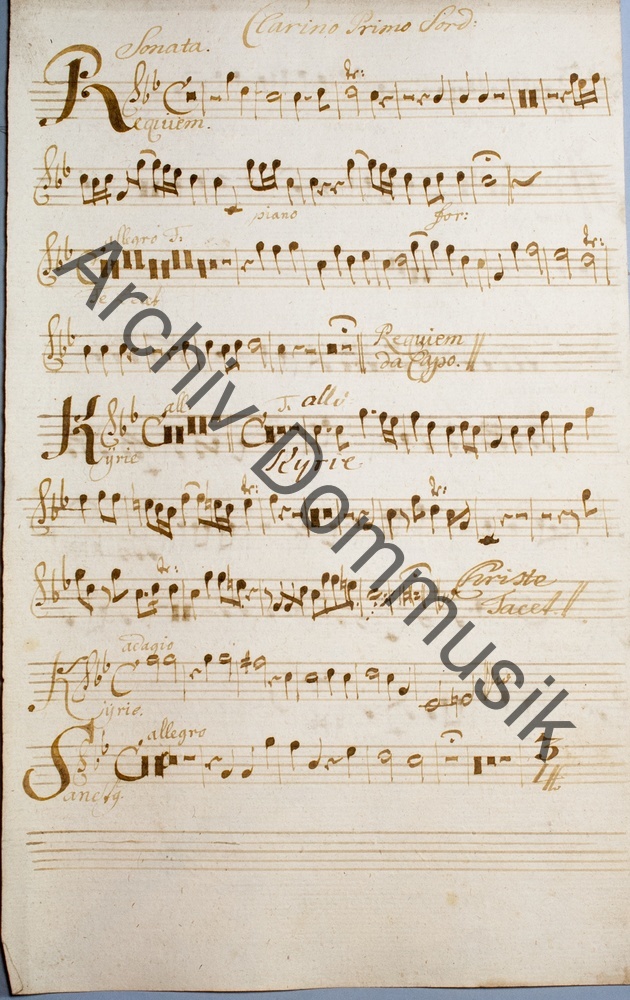 Clarino Primo Sord:
Sonata.
Requiem.
tr:
piano for:
allegro T:
tr:
Requiem
da Capo.
all
T. allo
Kÿrie
Kyrie
tr: tr:
tr:
Christe
Tacet.
adagio
Kÿrie.
allegro
Sanctq.
Archiv Dommusik